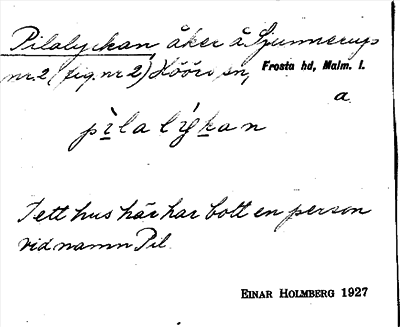 Pilalyckan, åker å Sjunnerups
nr 2 (fig. nr 2) Höörs sn, Frosta hd, Malm. l.
a.
pìlalýkan
I ett hus här har bott en person
vid namn Pil.
EINAR HOLMBERG 1927